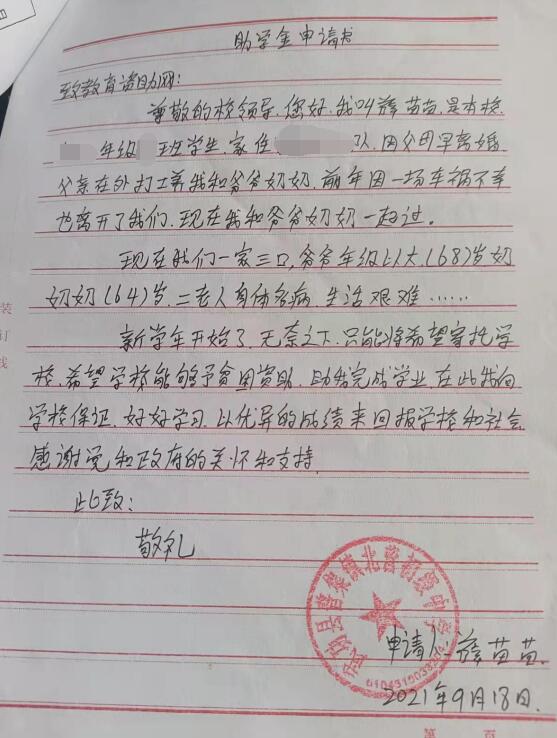 助学金申请书
致教育诸助网:
尊敬的校领导,您好,我叫蔡苗苗,是本校
年级 班学生,家住 队,因父母早离婚
父亲在外打工养我和爷爷奶奶,前年因一场车祸不幸
也离开了我们,现在我和爷爷奶奶一起过。
现在我们一家三口,爷爷年级以大(68)岁奶
奶奶(64)岁,二老人身体多病,生活艰难……
新学年开始了,无奈之下,只能将希望寄托学
校,希望学校能够予贫困资助,助我完成学业,在此我向
学校保证,好好学习,以优异的成绩来回报学校和社会
感谢党和政府的关怀和支持
此致:
敬礼
武功县普集镇北普初级中学
申请人:蔡苗苗.
2021年9月18日.
装
订
线
第 页